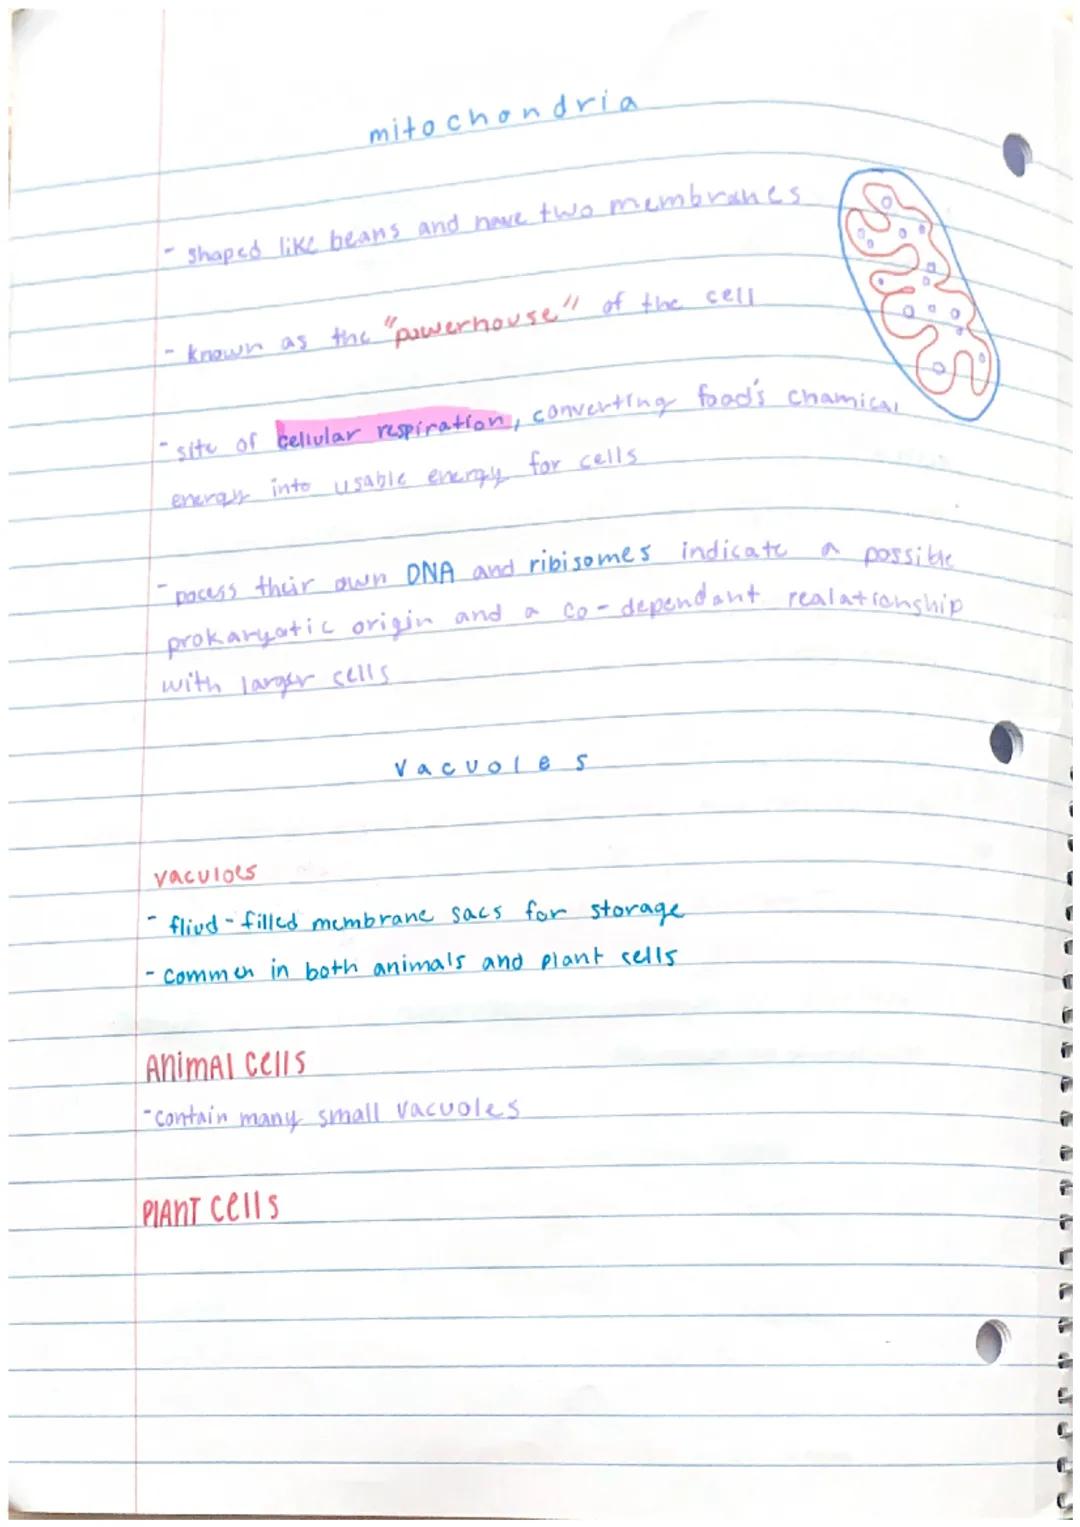 mitochondria
- shaped like beans and have two membranes
- known as the "powerhouse" of the cell
- site of cellular respiration, converting food's chamical
energy into usable energy for cells
- pocess their own DNA and ribisomes indicate a possible
prokaryotic origin and a co-dependant realationship
with larger cells
vacuoles
vaculoes
- fliud-filled membrane sacs for storage
- common in both animals and plant cells
ANIMAl Cells
- contain many small vacuoles
PlANT Cells